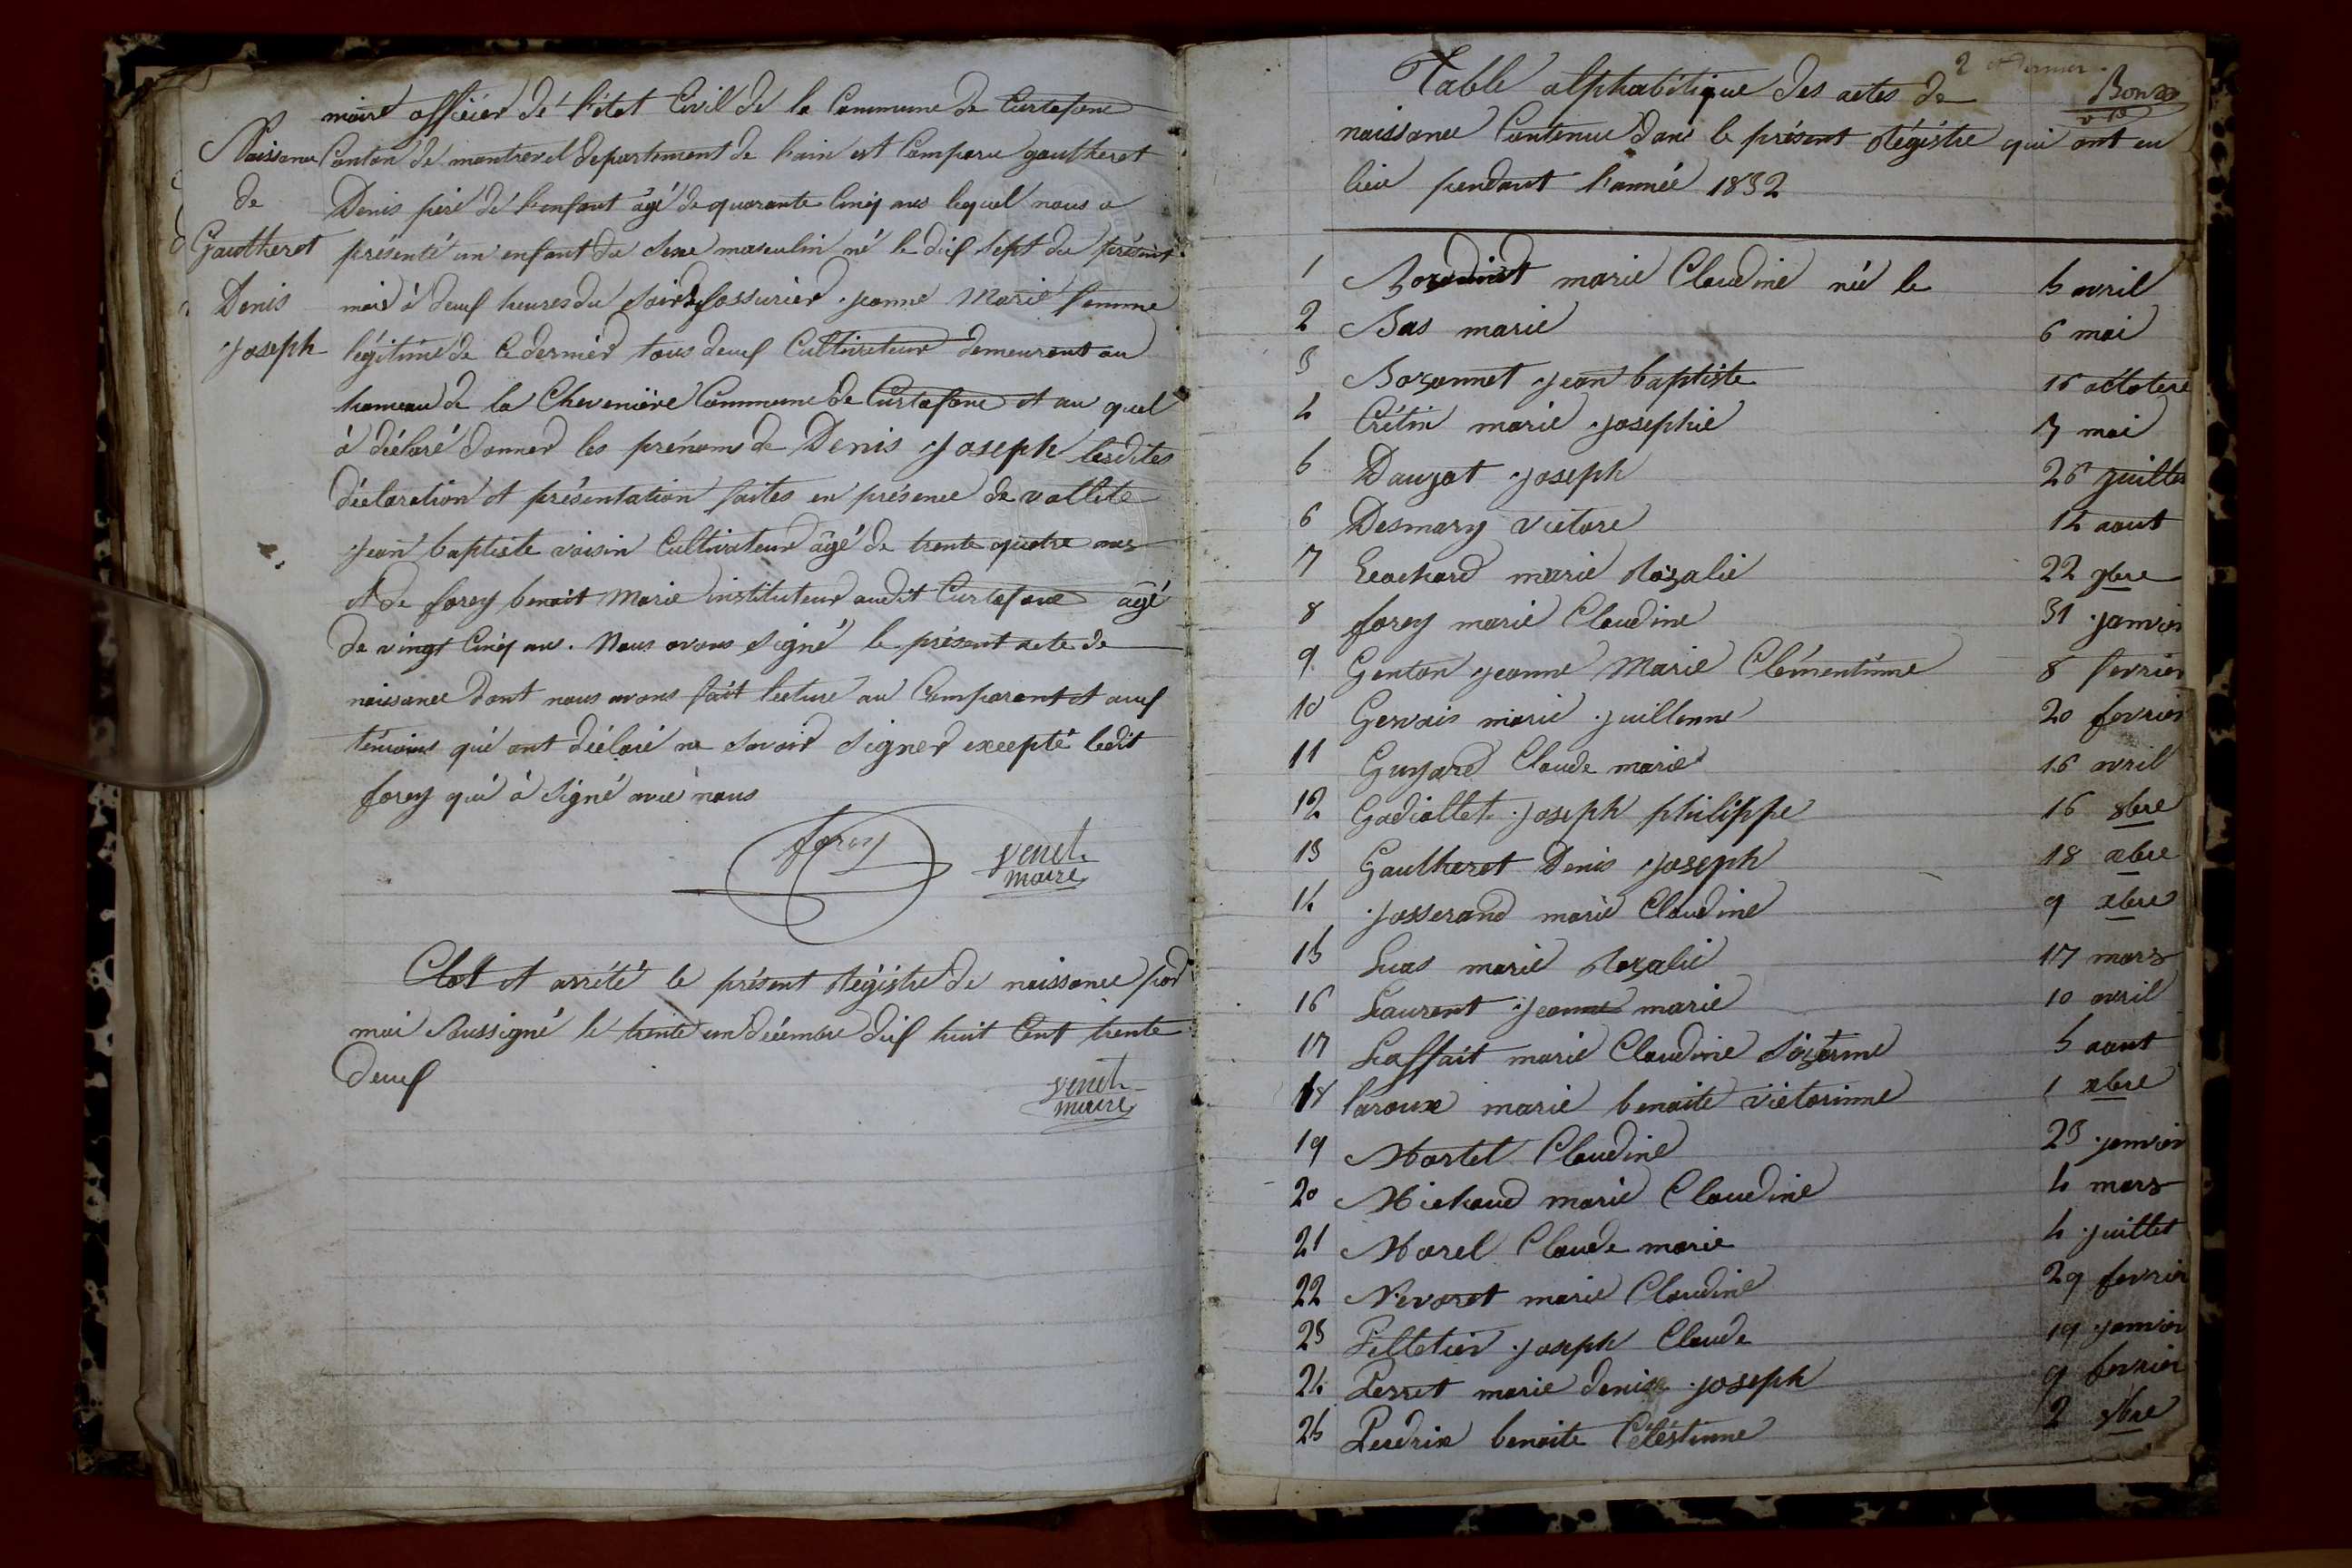 maire officier de l'état Civil de la Commune de Curtafond
Naissance
de
Gautheret
Denis
Joseph
Canton de montrevel departement de l'ain est Comparu gautheret
Denis père de l'enfant âgé de quarante Cinq ans lequel nous a
présenté un enfant du Sexe masculin né le dix Sept du présent
mois à deux heures du Soir de fossurier Jeanne Marie femme
légitime de Ce dernier tous deux Cultivateur demeurant au
hameau de la Chevenière Commune de Curtafond et au quel
à déclaré donner les prénoms de Denis Joseph lesdites
déclaration et présentation faites en présence de vallete
Jean baptiste voisin Cultivateur âgé de trente quatre ans
et de forey benoit Marie instituteur audit Curtafond âgé
de vingt Cinq ans. Nous avons Signé le présent acte de
naissance dont nous avons fait lecture au Comparant et aux
témoins qui ont déclaré ne Savoir Signer excepté ledit
forey qui à Signé avec nous
forey venet
maire
Clot et arrété le présent Régistre de naissance par
moi Soussigné le trente un décembre dix huit Cent trente
deux
venet
maire
2 et dernier
Table alphabétique des actes de
naissance Contenue dans le présent Régistre qui ont eu
lieu pendant l'année 1832
1 marie Claudine née le 5 avril
2 Bas marie 6 mai
3 Bozonnet Jean baptiste 16 octobre
4 Crétin marie Josephie 7 mai
5 Daujat Joseph 26 juillet
6 Desmary Victore 14 aout
7 marie Rozalie 22 9bre
8 forey marie Claudine 31 janvier
9 Genton Jeanne Marie Clémentinne 8 fevrier
10 Gervais marie Juillenne 20 fevrier
11 Guyard Claude marie 16 avril
12 Gadiollet Joseph philippe 16 8bre
13 Gautheret Denis Joseph 18 xbre
14 Josserand marie Claudine 9 xbre
15 Luas marie Rozalie 17 mars
16 Laurent Jeanne marie 10 avril
17 Laffait marie Claudine 5 aout
18 laroux marie benoite victorinne 1 xbre
19 Martel Claudine 23 janvier
20 Michaud marie Claudine 4 mars
21 Morel Claude marie 4 juillet
22 Nevoret marie Claudine 29 fevrier
23 Pelletier Joseph Claude 19 janvier
24 Perret marie denise Joseph 9 fevrier
25 Perdrix benoite Céléstinne 2